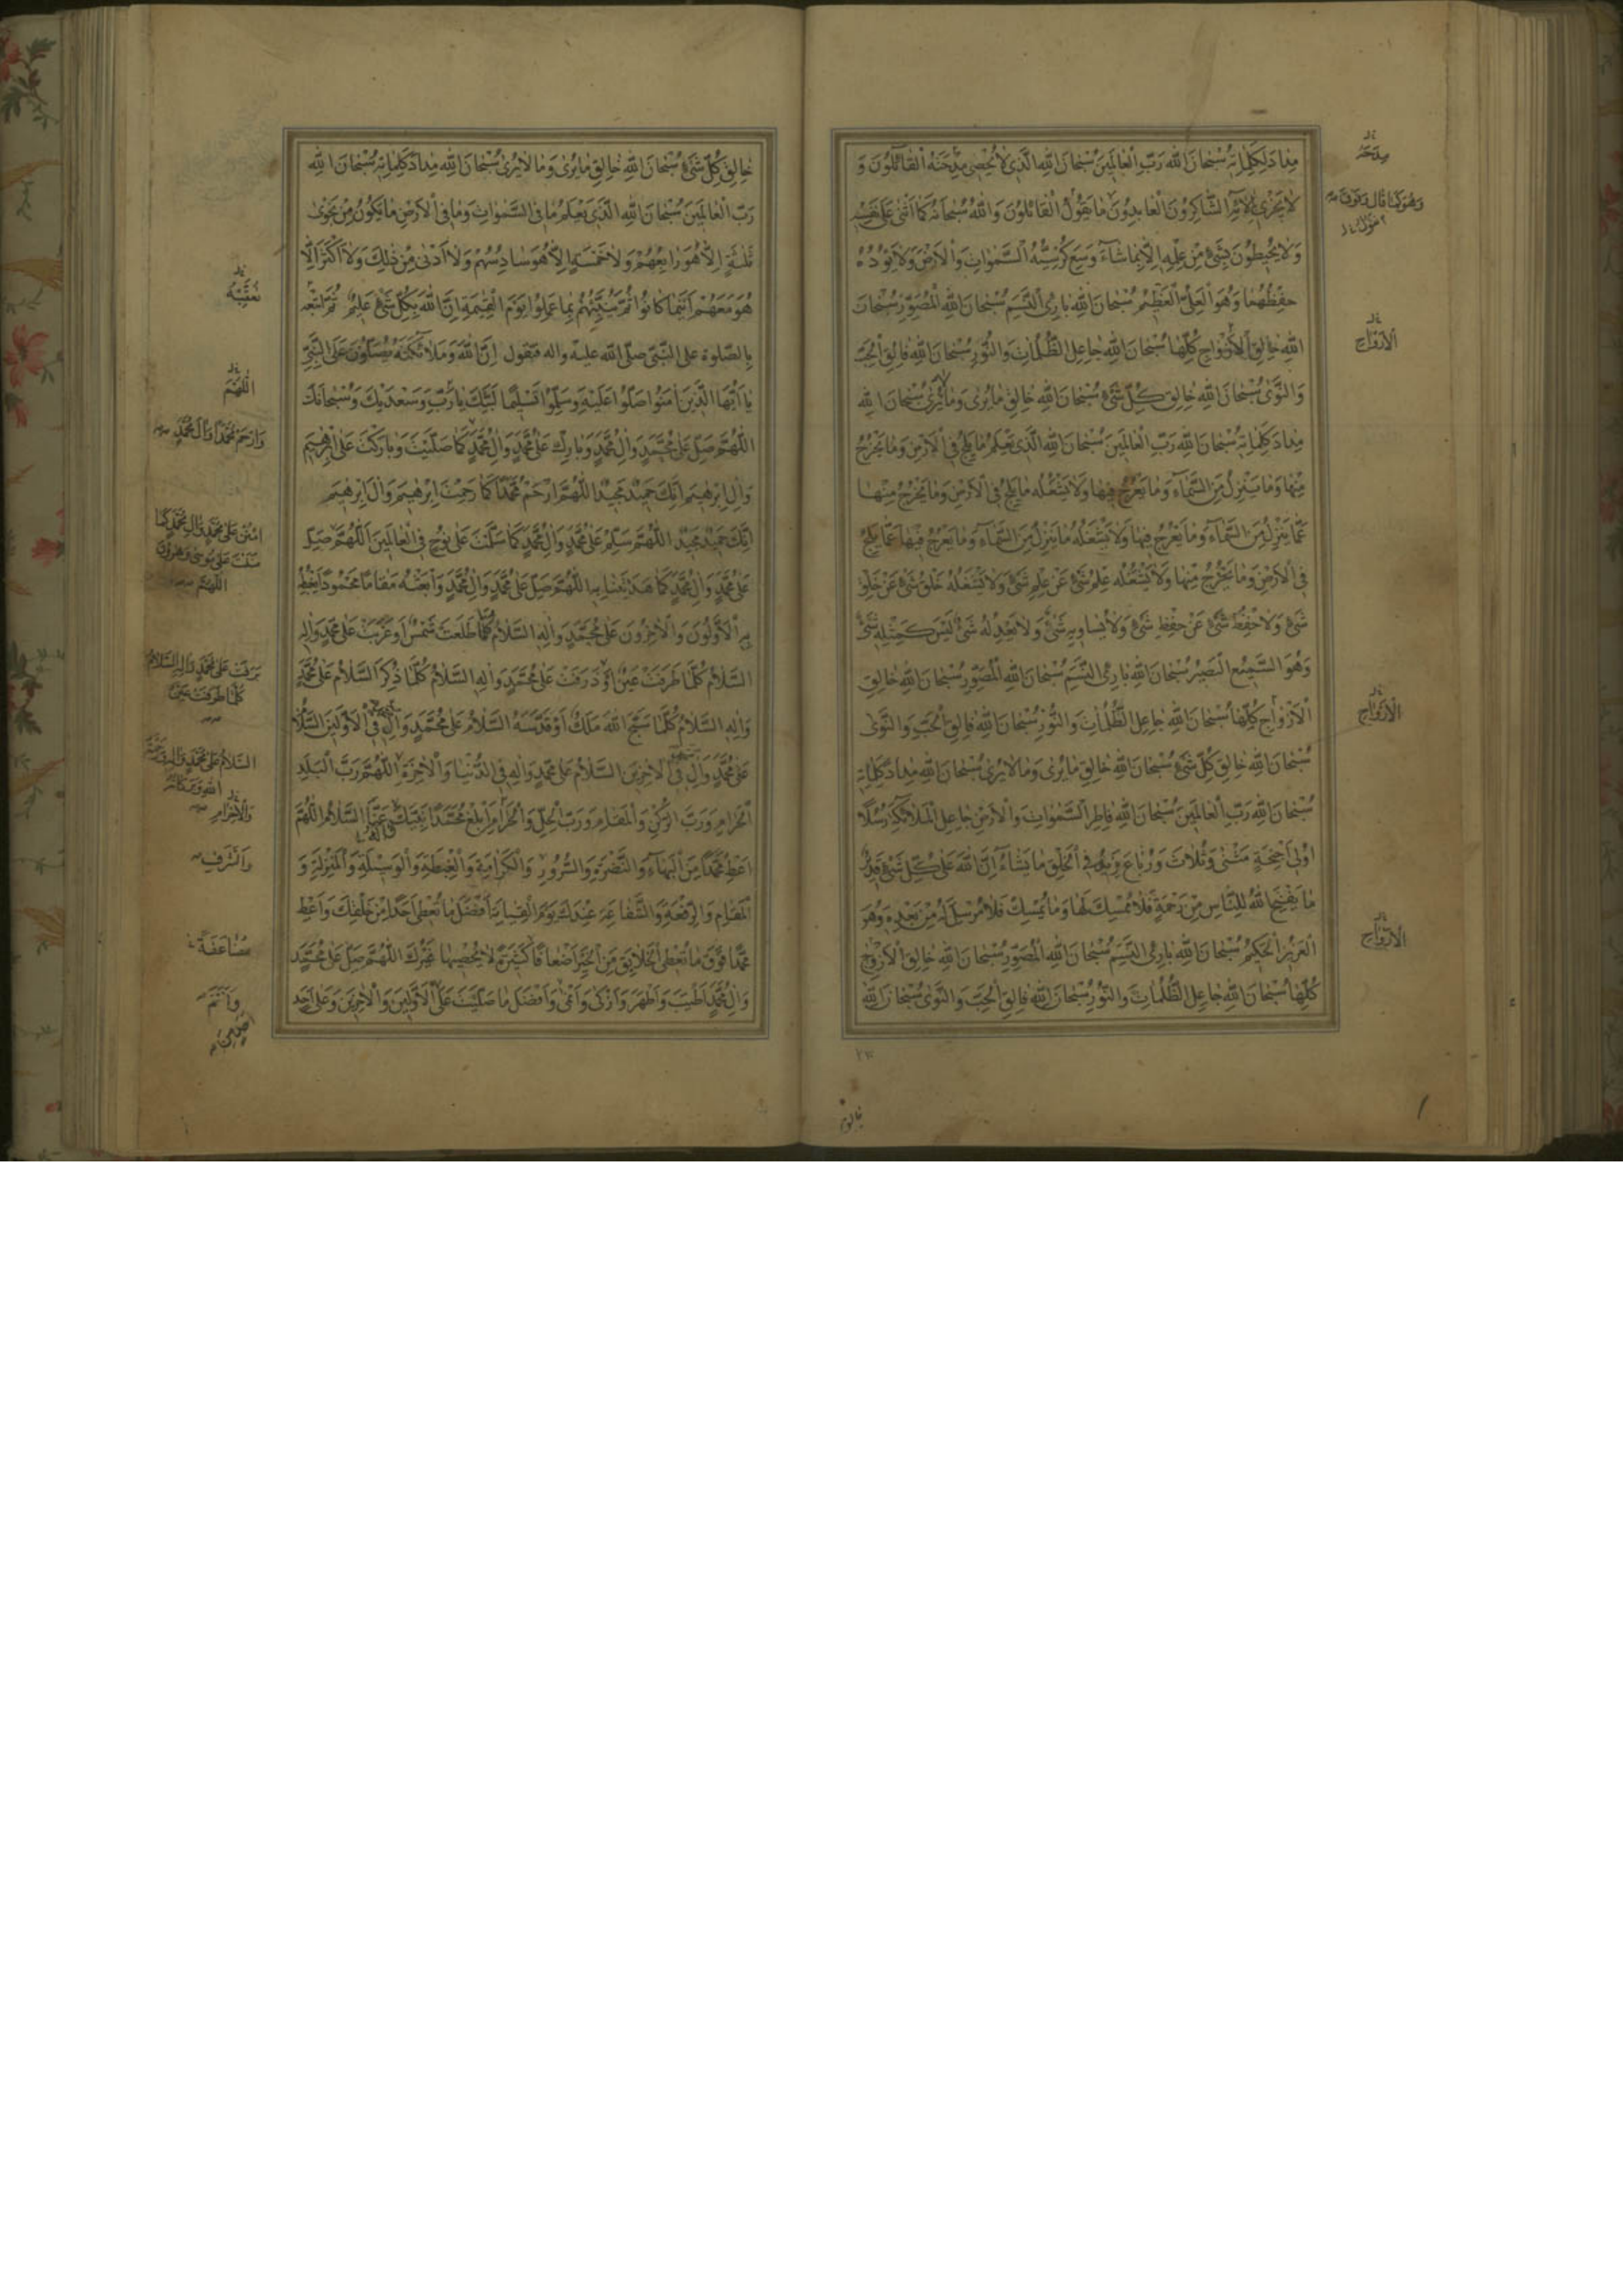 مِدادَ كَلِماتِهِ سُبْحانَ اللّٰهِ رَبِّ الْعالَمينَ سُبْحانَ اللّٰهِ الَّذى لا يُحْصى مِدْحَتَهُ الْقائِلُونَ وَ
لا يَجْزى بِالائِهِ الشّاكِرُونَ الْعابِدُونَ وَ ما يَقُولُ الْقائِلُونَ وَاللّٰهُ سُبْحانَهُ كَما اَثْنى عَلى نَفْسِهِ
وَلا يُحيطُونَ بِشَىْءٍ مِنْ عِلْمِهِ اِلّا بِما شاءَ وَسِعَ كُرْسِيُّهُ السَّمٰواتِ وَالْاَرْضَ وَلا يَؤُدُهُ
حِفْظُهُما وَهُوَ الْعَلِىُّ الْعَظيمُ سُبْحانَ اللّٰهِ بارِئِ النَّسَمِ سُبْحانَ اللّٰهِ الْمُصَوِّرِ سُبْحانَ
اللّٰهِ خالِقِ الْاَزْواجِ كُلِّها سُبْحانَ اللّٰهِ جاعِلِ الظُّلُماتِ وَالنُّورِ سُبْحانَ اللّٰهِ فالِقِ الْحَبِّ
وَالنَّوى سُبْحانَ اللّٰهِ خالِقِ كُلِّ شَىْءٍ سُبْحانَ اللّٰهِ خالِقِ ما يُرى وَما لا يُرى سُبْحانَ اللّٰهِ
مِدادَ كَلِماتِهِ سُبْحانَ اللّٰهِ رَبِّ الْعالَمينَ سُبْحانَ اللّٰهِ الَّذى يَعْلَمُ ما يَلِجُ فِى الْاَرْضِ وَما يَخْرُجُ
مِنْها وَما يَنْزِلُ مِنَ السَّماءِ وَما يَعْرُجُ فيها وَلا يَشْغَلُهُ ما يَلِجُ فِى الْاَرْضِ وَما يَخْرُجُ مِنْها
عَمّا يَنْزِلُ مِنَ السَّماءِ وَما يَعْرُجُ فيها وَلا يَشْغَلُهُ ما يَنْزِلُ مِنَ السَّماءِ وَما يَعْرُجُ فيها عَمّا يَلِجُ
فِى الْاَرْضِ وَما يَخْرُجُ مِنْها وَلا يَشْغَلُهُ عِلْمُ شَىْءٍ عَنْ عِلْمِ شَىْءٍ وَلا يَشْغَلُهُ خَلْقُ شَىْءٍ عَنْ خَلْقِ
شَىْءٍ وَلا حِفْظُ شَىْءٍ عَنْ حِفْظِ شَىْءٍ وَلا يُساويهِ شَىْءٌ وَلا يَعْدِلُهُ شَىْءٌ لَيْسَ كَمِثْلِهِ شَىْءٌ
وَهُوَ السَّميعُ الْبَصيرُ سُبْحانَ اللّٰهِ بارِئِ النَّسَمِ سُبْحانَ اللّٰهِ الْمُصَوِّرِ سُبْحانَ اللّٰهِ خالِقِ
الْاَزْواجِ كُلِّها سُبْحانَ اللّٰهِ جاعِلِ الظُّلُماتِ وَالنُّورِ سُبْحانَ اللّٰهِ فالِقِ الْحَبِّ وَالنَّوى
سُبْحانَ اللّٰهِ خالِقِ كُلِّ شَىْءٍ سُبْحانَ اللّٰهِ خالِقِ ما يُرى وَما لا يُرى سُبْحانَ اللّٰهِ مِدادَ كَلِماتِهِ
سُبْحانَ اللّٰهِ رَبِّ الْعالَمينَ سُبْحانَ اللّٰهِ فاطِرِ السَّمٰواتِ وَالْاَرْضِ جاعِلِ الْمَلائِكَةِ رُسُلًا
اُولى اَجْنِحَةٍ مَثْنى وَثُلاثَ وَرُباعَ يَزيدُ فِى الْخَلْقِ ما يَشاءُ اِنَّ اللّٰهَ عَلى كُلِّ شَىْءٍ قَديرٌ
ما يَفْتَحِ اللّٰهُ لِلنّاسِ مِنْ رَحْمَةٍ فَلا مُمْسِكَ لَها وَما يُمْسِكْ فَلا مُرْسِلَ لَهُ مِنْ بَعْدِهِ وَهُوَ
الْعَزيزُ الْحَكيمُ سُبْحانَ اللّٰهِ بارِئِ النَّسَمِ سُبْحانَ اللّٰهِ الْمُصَوِّرِ سُبْحانَ اللّٰهِ خالِقِ الْاَزْوٰجِ
كُلِّها سُبْحانَ اللّٰهِ جاعِلِ الظُّلُماتِ وَالنُّورِ سُبْحانَ اللّٰهِ فالِقِ الْحَبِّ وَالنَّوى سُبْحانَ اللّٰهِ
مِدَحَهُ
وَهُوَ كَما قالَ وَفَوْقَ
الْاَزْواجِ
الْاَزْواجِ
الْاَزْواجِ
خالِقِ كُلِّ شَىْءٍ سُبْحانَ اللّٰهِ خالِقِ ما يُرى وَما لا يُرى سُبْحانَ اللّٰهِ مِدادَ كَلِماتِهِ سُبْحانَ اللّٰهِ
رَبِّ الْعالَمينَ سُبْحانَ اللّٰهِ الَّذى يَعْلَمُ ما فِى السَّمٰواتِ وَما فِى الْاَرْضِ ما يَكُونُ مِنْ نَجْوى
ثَلٰثَةٍ اِلّا هُوَ رابِعُهُمْ وَلا خَمْسَةٍ اِلّا هُوَ سادِسُهُمْ وَلا اَدْنى مِنْ ذٰلِكَ وَلا اَكْثَرَ اِلّا
هُوَ مَعَهُمْ اَيْنَما كانُوا ثُمَّ يُنَبِّئُهُمْ بِما عَمِلُوا يَوْمَ الْقِيٰمَةِ اِنَّ اللّٰهَ بِكُلِّ شَىْءٍ عَليمٌ ثُمَّ تتبعه
بالصّلوة على النّبىّ صلّى اللّه عليه واله فتقول اِنَّ اللّٰهَ وَمَلائِكَتَهُ يُصَلُّونَ عَلَى النَّبِىِّ
يا اَيُّهَا الَّذينَ امَنُوا صَلُّوا عَلَيْهِ وَسَلِّمُوا تَسْليمًا لَبَّيْكَ يا رَبِّ وَسَعْدَيْكَ وَسُبْحانَكَ
اللّٰهُمَّ صَلِّ عَلى مُحَمَّدٍ وَالِ مُحَمَّدٍ وَبارِكْ عَلى مُحَمَّدٍ وَالِ مُحَمَّدٍ كَما صَلَّيْتَ وَبارَكْتَ عَلى اِبْرٰهيمَ
وَالِ اِبْرٰهيمَ اِنَّكَ حَميدٌ مَجيدٌ اللّٰهُمَّ ارْحَمْ مُحَمَّدًا كَما رَحِمْتَ اِبْرٰهيمَ وَالَ اِبْرٰهيمَ
اِنَّكَ حَميدٌ مَجيدٌ اللّٰهُمَّ سَلِّمْ عَلى مُحَمَّدٍ وَالِ مُحَمَّدٍ كَما سَلَّمْتَ عَلى نُوحٍ فِى الْعالَمينَ اللّٰهُمَّ صَلِّ
عَلى مُحَمَّدٍ وَالِ مُحَمَّدٍ كَما هَدَيْتَنا بِهِ اللّٰهُمَّ صَلِّ عَلى مُحَمَّدٍ وَالِ مُحَمَّدٍ وَابْعَثْهُ مَقامًا مَحْمُودًا يَغْبِطُهُ
بِهِ الْاَوَّلُونَ وَالْاخِرُونَ عَلى مُحَمَّدٍ وَالِهِ السَّلامُ كُلَّما طَلَعَتْ شَمْسٌ اَوْ غَرَبَتْ عَلى مُحَمَّدٍ وَالِهِ
السَّلامُ كُلَّما طَرَفَتْ عَيْنٌ اَوْ ذَرَفَتْ عَلى مُحَمَّدٍ وَالِهِ السَّلامُ كُلَّما ذُكِرَ السَّلامُ عَلى مُحَمَّدٍ
وَالِهِ السَّلامُ كُلَّما سَبَّحَ اللّٰهَ مَلَكٌ اَوْ قَدَّسَهُ السَّلامُ عَلى مُحَمَّدٍ وَالِهِ فِى الْاَوَّلينَ السَّلامُ
عَلى مُحَمَّدٍ وَالِهِ فِى الْاخِرينَ السَّلامُ عَلى مُحَمَّدٍ وَالِهِ فِى الدُّنْيا وَالْاخِرَةِ اللّٰهُمَّ رَبَّ الْبَلَدِ
الْحَرامِ وَرَبَّ الرُّكْنِ وَالْمَقامِ وَرَبَّ الْحِلِّ وَالْحَرامِ اَبْلِغْ مُحَمَّدًا نَبِيَّكَ عَنَّا السَّلامَ اللّٰهُمَّ
اَعْطِ مُحَمَّدًا مِنَ الْبَهاءِ وَالنَّضْرَةِ وَالسُّرُورِ وَالْكَرامَةِ وَالْغِبْطَةِ وَالْوَسيلَةِ وَالْمَنْزِلَةِ وَ
الْمَقامِ وَالرِّفْعَةِ وَالشَّفاعَةِ عِنْدَكَ يَوْمَ الْقِيامَةِ اَفْضَلَ ما تُعْطى اَحَدًا مِنْ خَلْقِكَ وَاَعْطِ
مُحَمَّدًا فَوْقَ ما تُعْطِى الْخَلائِقَ مِنَ الْخَيْرِ اَضْعافًا كَثيرَةً لا يُحْصيها غَيْرُكَ اللّٰهُمَّ صَلِّ عَلى مُحَمَّدٍ
وَالِ مُحَمَّدٍ اَطْيَبَ وَاَطْهَرَ وَاَزْكى وَاَنْمى وَاَفْضَلَ ما صَلَّيْتَ عَلَى الْاَوَّلينَ وَالْاخِرينَ وَعَلى اَحَدٍ
اللّٰهُمَّ
وَارْحَمْ مُحَمَّدًا وَالَ مُحَمَّدٍ
امْنُنْ عَلى مُحَمَّدٍ وَالِ مُحَمَّدٍ كَما
مَنَنْتَ عَلى مُوسى وَهرُونَ
اللّٰهُمَّ
بَرَقَتْ عَلى مُحَمَّدٍ وَالِهِ السَّلامُ
كُلَّما طَرَفَتْ عَيْنٌ
السَّلامُ عَلى مُحَمَّدٍ وَالِهِ وَرَحْمَةُ
اللّٰهِ وَبَرَكاتُهُ
وَالْاِحْرامِ
وَالشَّرَفِ
مُضاعَفَةً